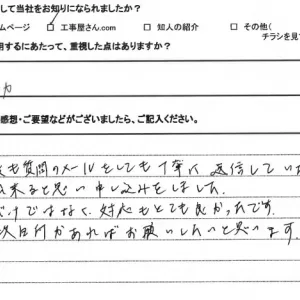 して当社をお知りになられましたか?
ムページ □ 工事屋さん.com □ 知人の紹介 □ その他(
チラシを見
用するにあたって、重視した点はありますか?
感想・ご要望などがございましたら、ご記入ください。
も質問のメールをしても丁寧に返信してい
来ると思い申し込みをしました。
だけではなく、対応もとても良かったです。
があればお願いしたいと思います。